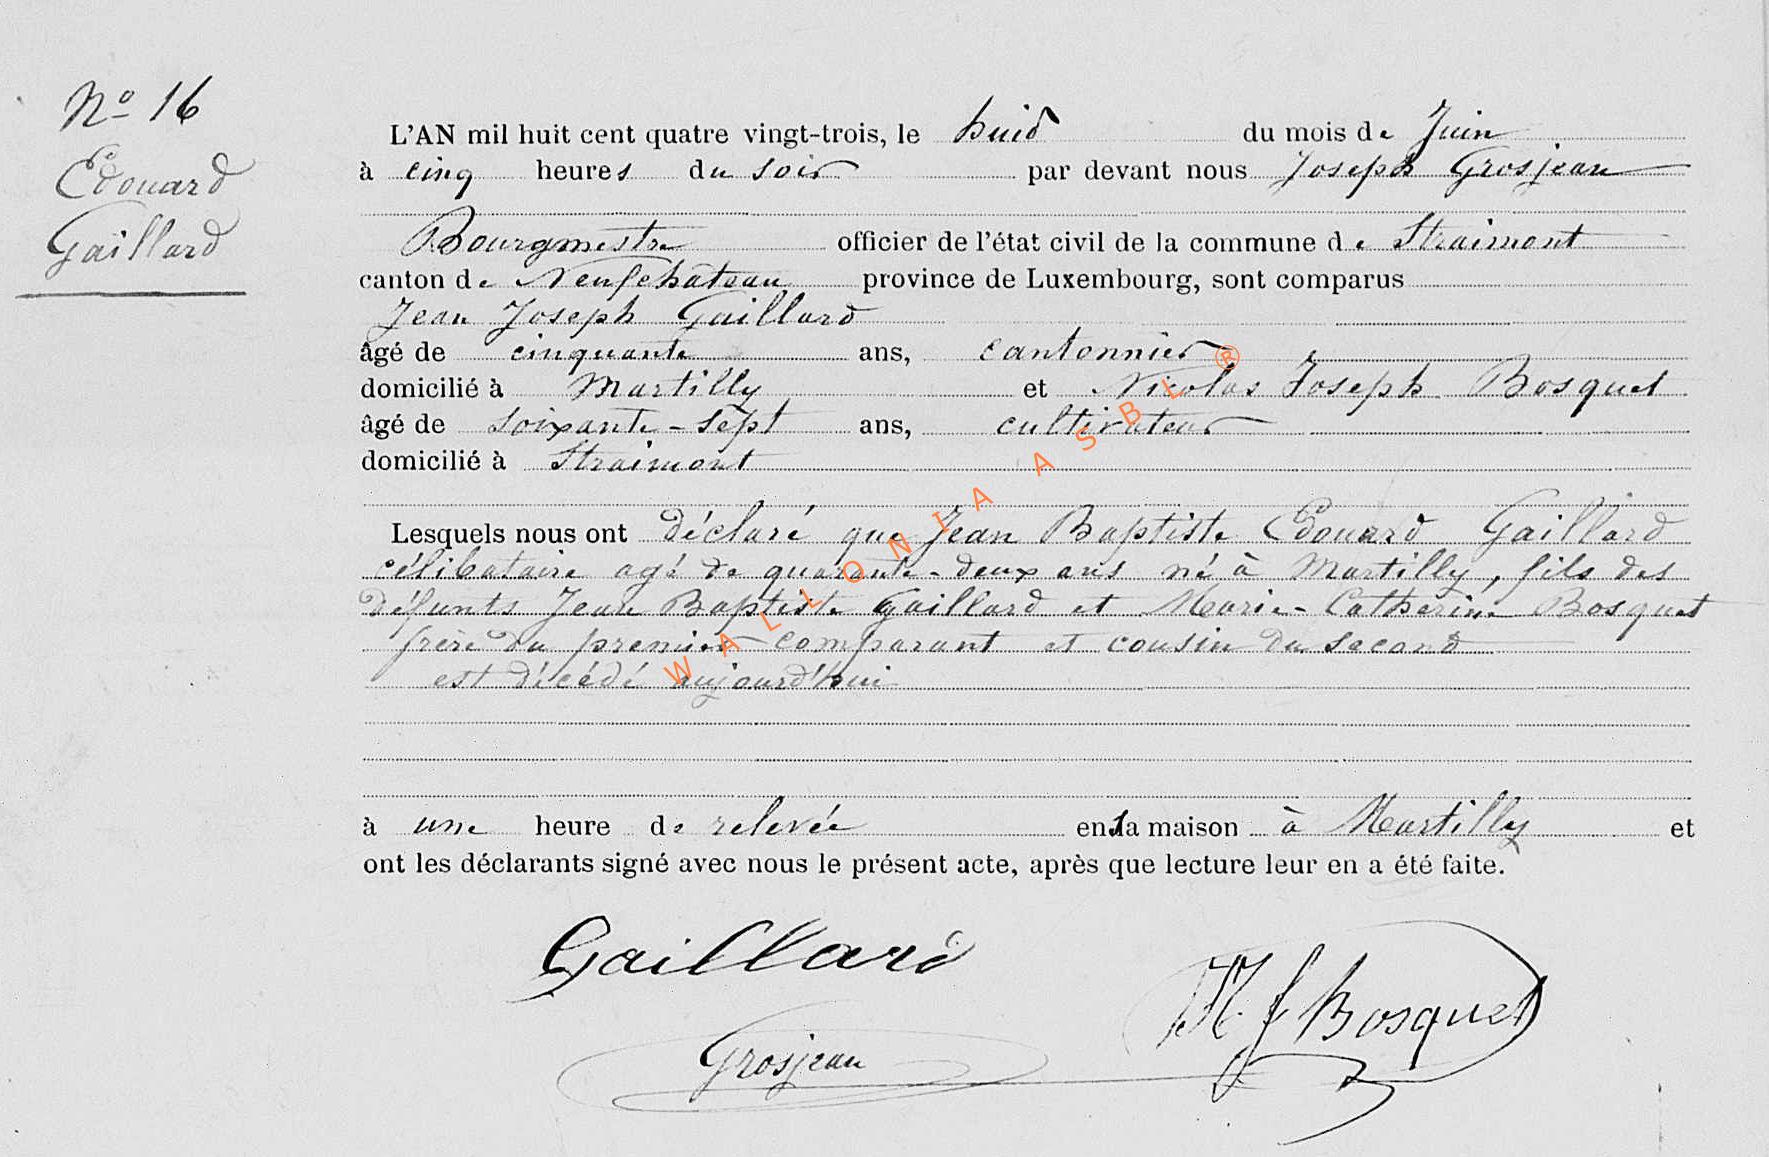 Nº 16
Edouard
Gaillard
L'AN mil huit cent quatre vingt-trois, le huit du mois de Juin
à cinq heures du soir par devant nous Joseph Grosjean
Bourgmestre officier de l'état civil de la commune de Straimont
canton de Neufchâteau province de Luxembourg, sont comparus
Jean Joseph Gaillard
âgé de cinquante ans, cantonnier
domicilié à Martilly et Nicolas Joseph Bosquet
âgé de soixante-sept ans, cultivateur
domicilié à Straimont
Lesquels nous ont déclaré que Jean Baptiste Edouard Gaillard
célibataire agé de quarante-deux ans né à Martilly, fils des
défunts Jean Baptiste Gaillard et Marie-Catherine Bosquet
frère du premier comparant et cousin du second
est décédé aujourd'hui
à une heure de relevée en sa maison à Martilly et
ont les déclarants signé avec nous le présent acte, après que lecture leur en a été faite.
Gaillard
N. J Bosquet
Grosjean
WALLONIA ASBL ®